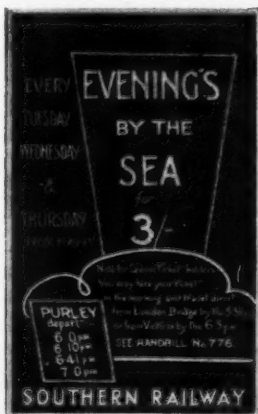 EVERY
TUESDAY
WEDNESDAY
&
THURSDAY
EVENING'S
BY THE
SEA
for
3/-
from London Bridge by the
or from Victoria by the
SEE HANDBILL No 776
PURLEY
depart
6 0 pm
6 10 pm
6 41 pm
7 0 pm
SOUTHERN RAILWAY